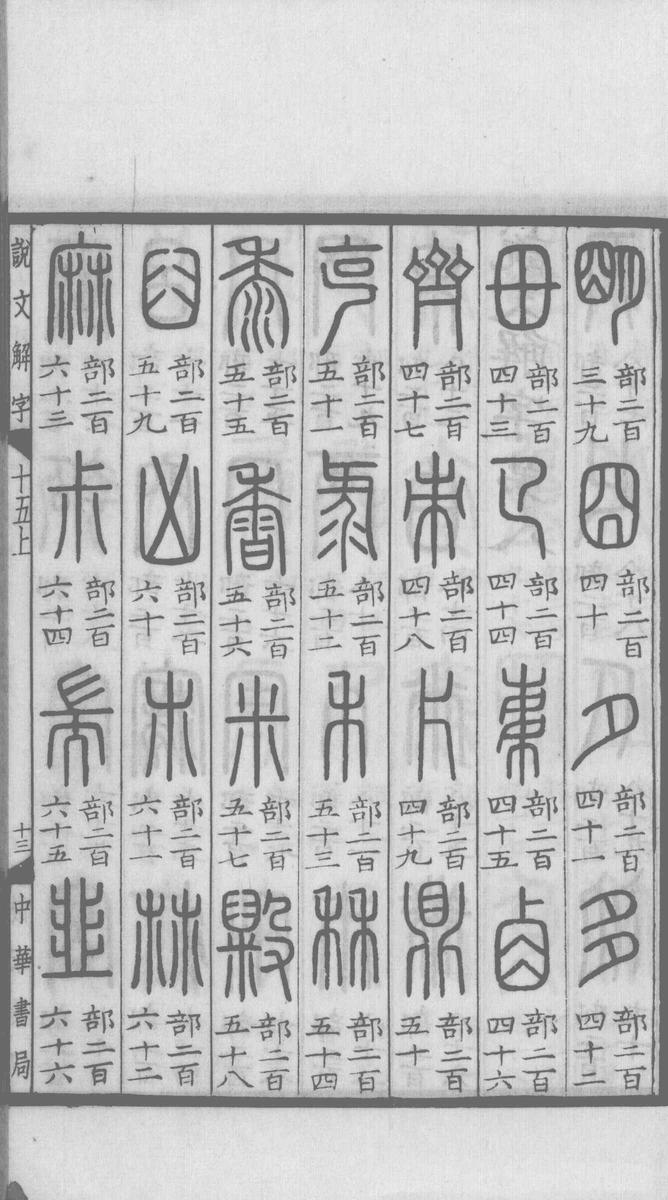 朙部二百三十九 囧部二百四十 夕部二百四十一 多部二百四十二
毌部二百四十三 𢎘部二百四十四 𣐺部二百四十五 𠧪部二百四十六
齊部二百四十七 朿部二百四十八 片部二百四十九 鼎部二百五十
克部二百五十一 彔部二百五十二 禾部二百五十三 秝部二百五十四
黍部二百五十五 香部二百五十六 米部二百五十七 毇部二百五十八
臼部二百五十九 凶部二百六十 朩部二百六十一 𣏟部二百六十二
麻部二百六十三 尗部二百六十四 耑部二百六十五 韭部二百六十六
說文解字 十五上 十三 中華書局